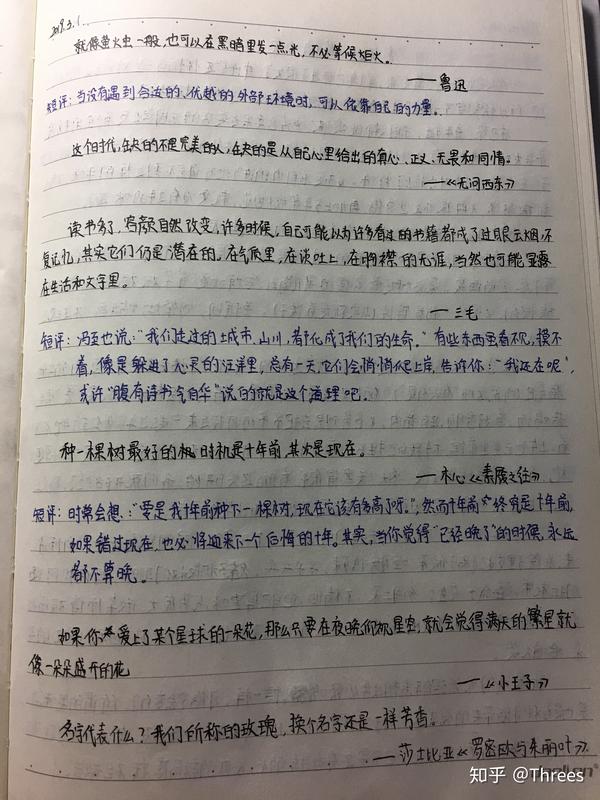 2018.3.1.
就像萤火虫一般,也可以在黑暗里发一点光,不必等候炬火。
——鲁迅
短评:当没有遇到合适的、优越的外部环境时,可以依靠自己的力量。
这个时代,缺的不是完美的人,缺的是从自己心里给出的真心、正义、无畏和同情。
——《无问西东》
读书多了,容颜自然改变,许多时候,自己可能以为许多看过的书籍都成了过眼云烟,不
复记忆,其实它们仍是潜在的。在气质里,在谈吐上,在胸襟的无涯,当然也可能显露
在生活和文字里。
——三毛
短评:冯至也说:"我们走过的城市、山川,都化成了我们的生命。"有些东西里看不见,摸不
着,像是躲进了心灵的汪洋里,总有一天,它们会悄悄爬上岸,告诉你:"我还在呢",
或许"腹有诗书气自华"说的就是这个道理吧。
种一棵树最好的时机是十年前,其次是现在。
——木心《素履之往》
短评:时常会想:"要是我十年前种下一棵树,现在它该有多高了呀。",然而十年前终究是十年前,
如果错过现在,也必将迎来下一个后悔的十年。其实,当你觉得"已经晚了"的时候,永远
都不算晚。
如果你爱上了某个星球的一朵花,那么只要在夜晚仰望星空,就会觉得满天的繁星就
像一朵朵盛开的花
——《小王子》
名字代表什么?我们所称的玫瑰,换个名字还是一样芳香。
——莎士比亚《罗密欧与朱丽叶》
知乎 @Threes